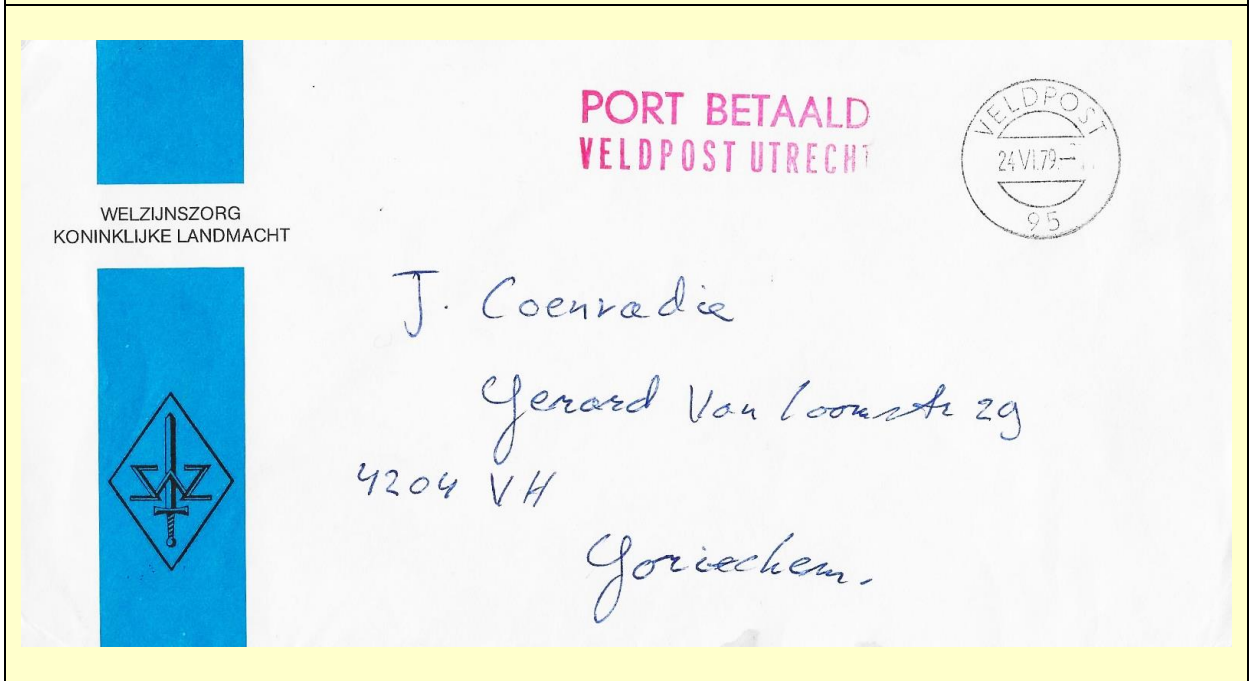 WELZIJNSZORG
KONINKLIJKE LANDMACHT
PORT BETAALD
VELDPOST UTRECHT
VELDPOST
24 VI.79.-
95
J. Coenradie
Gerard Van Loonstr 29
4204 VH
Gorinchem.